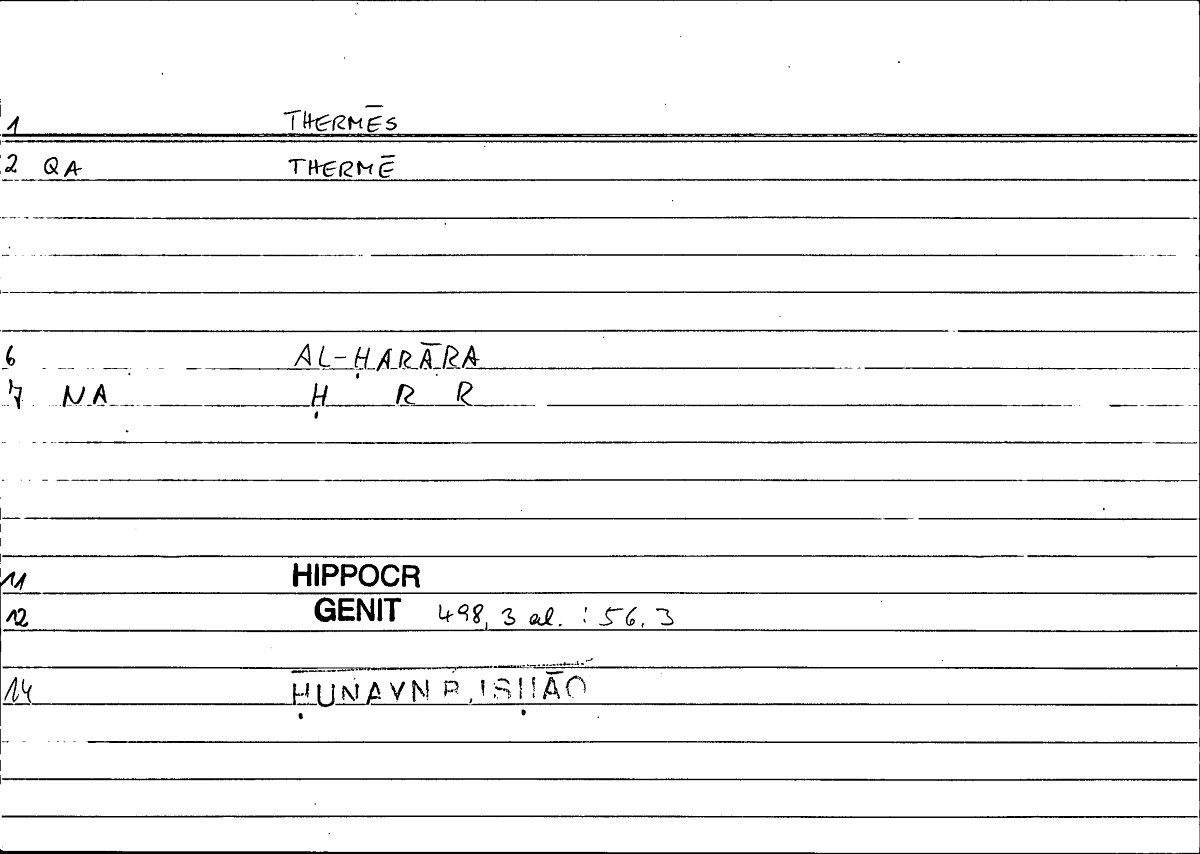 1 THERMĒS
2 QA THERMĒ
6 AL-ḤARĀRA
7 NA Ḥ R R
11 HIPPOCR
12 GENIT 498, 3 al. : 56. 3
14 ḤUNAYN B. ISḤĀQ